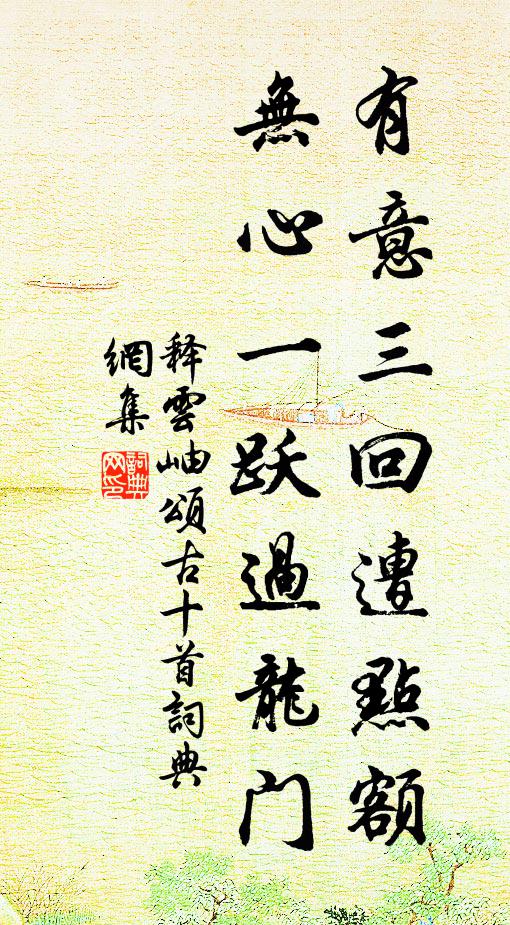 有意三回遭點額
無心一跃過龍门
释雲岫頌古十首詞典
網集
詞典网印